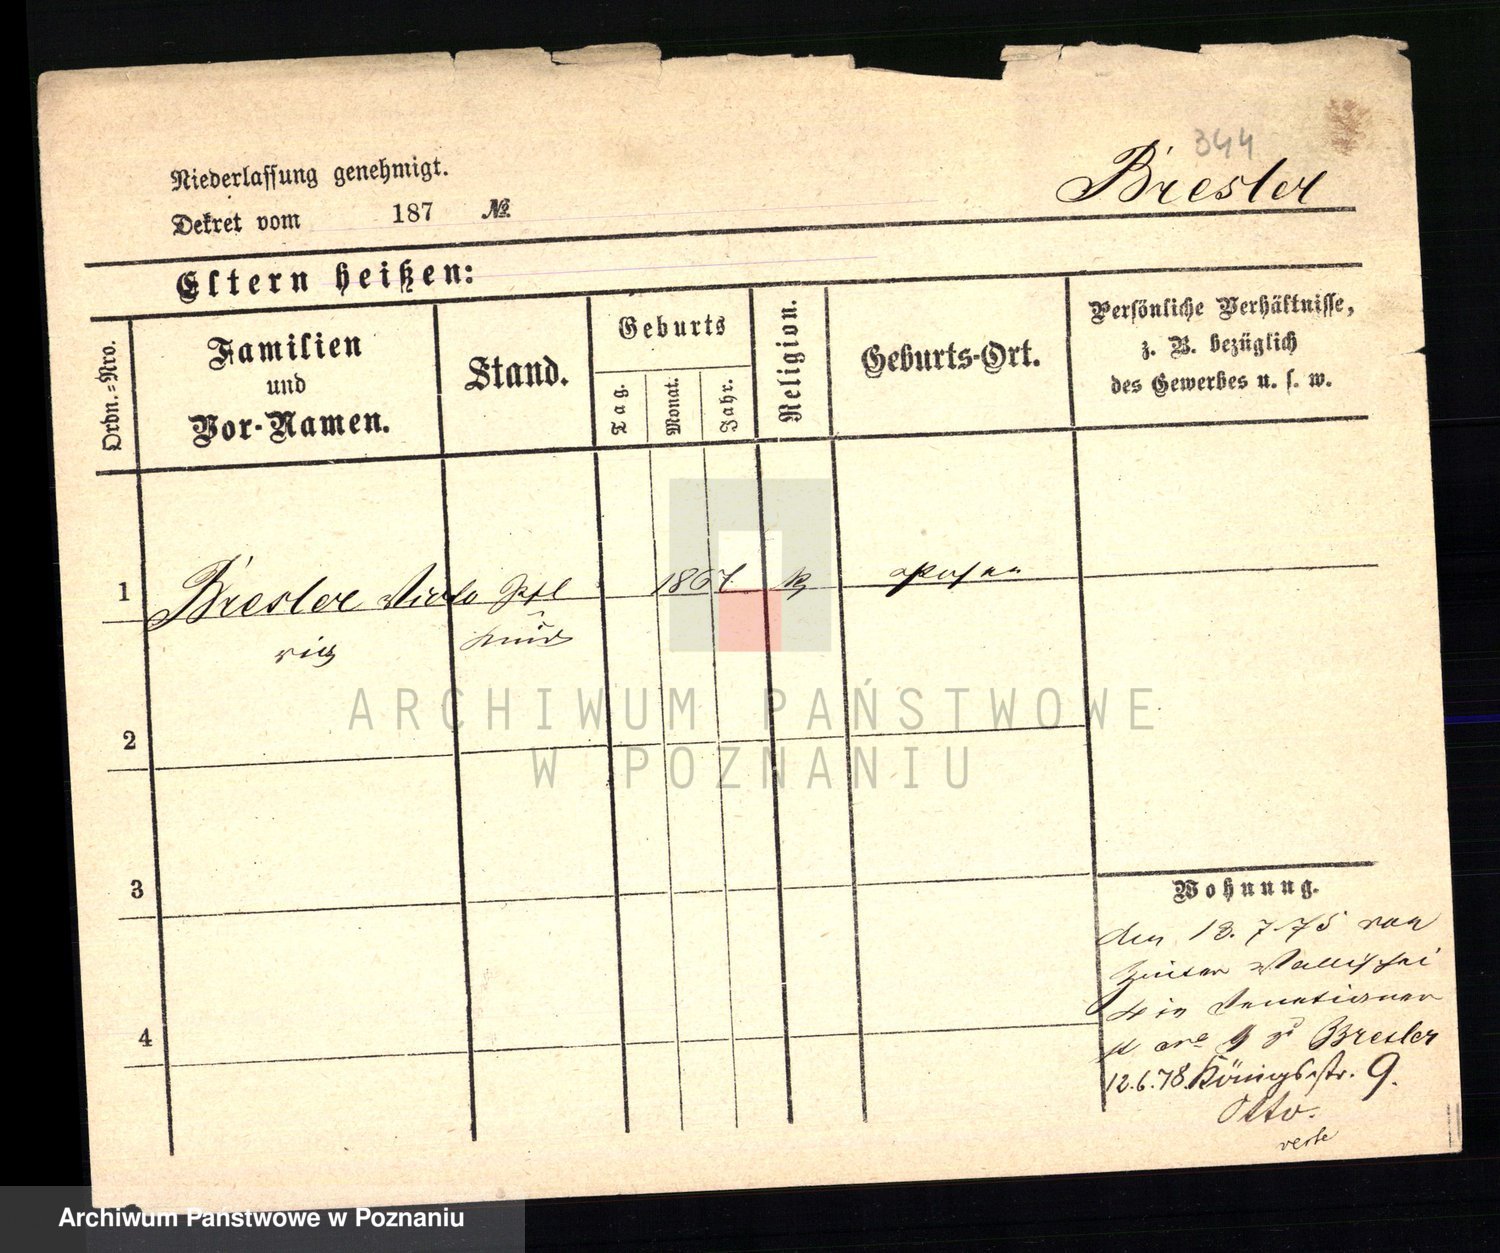 344
Bresler
Niederlassung genehmigt.
Dekret vom 187 №
Eltern heißen:
Ordn.=Nro.
Familien
und
Vor-Namen.
Stand.
Geburts
Tag.
Monat.
Jahr.
Religion.
Geburts-Ort.
Persönliche Verhältnisse,
z. B. bezüglich
des Gewerbes u. s. w.
1 Bresler 1867 Posen
2
3
4
Wohnung.
den 13.7.75 von
Hinter Wallischei
4 in Venetianer
Bresler
12.6.78. Königsstr. 9.
Otto.
verte
ARCHIWUM PAŃSTWOWE
W POZNANIU
Archiwum Państwowe w Poznaniu